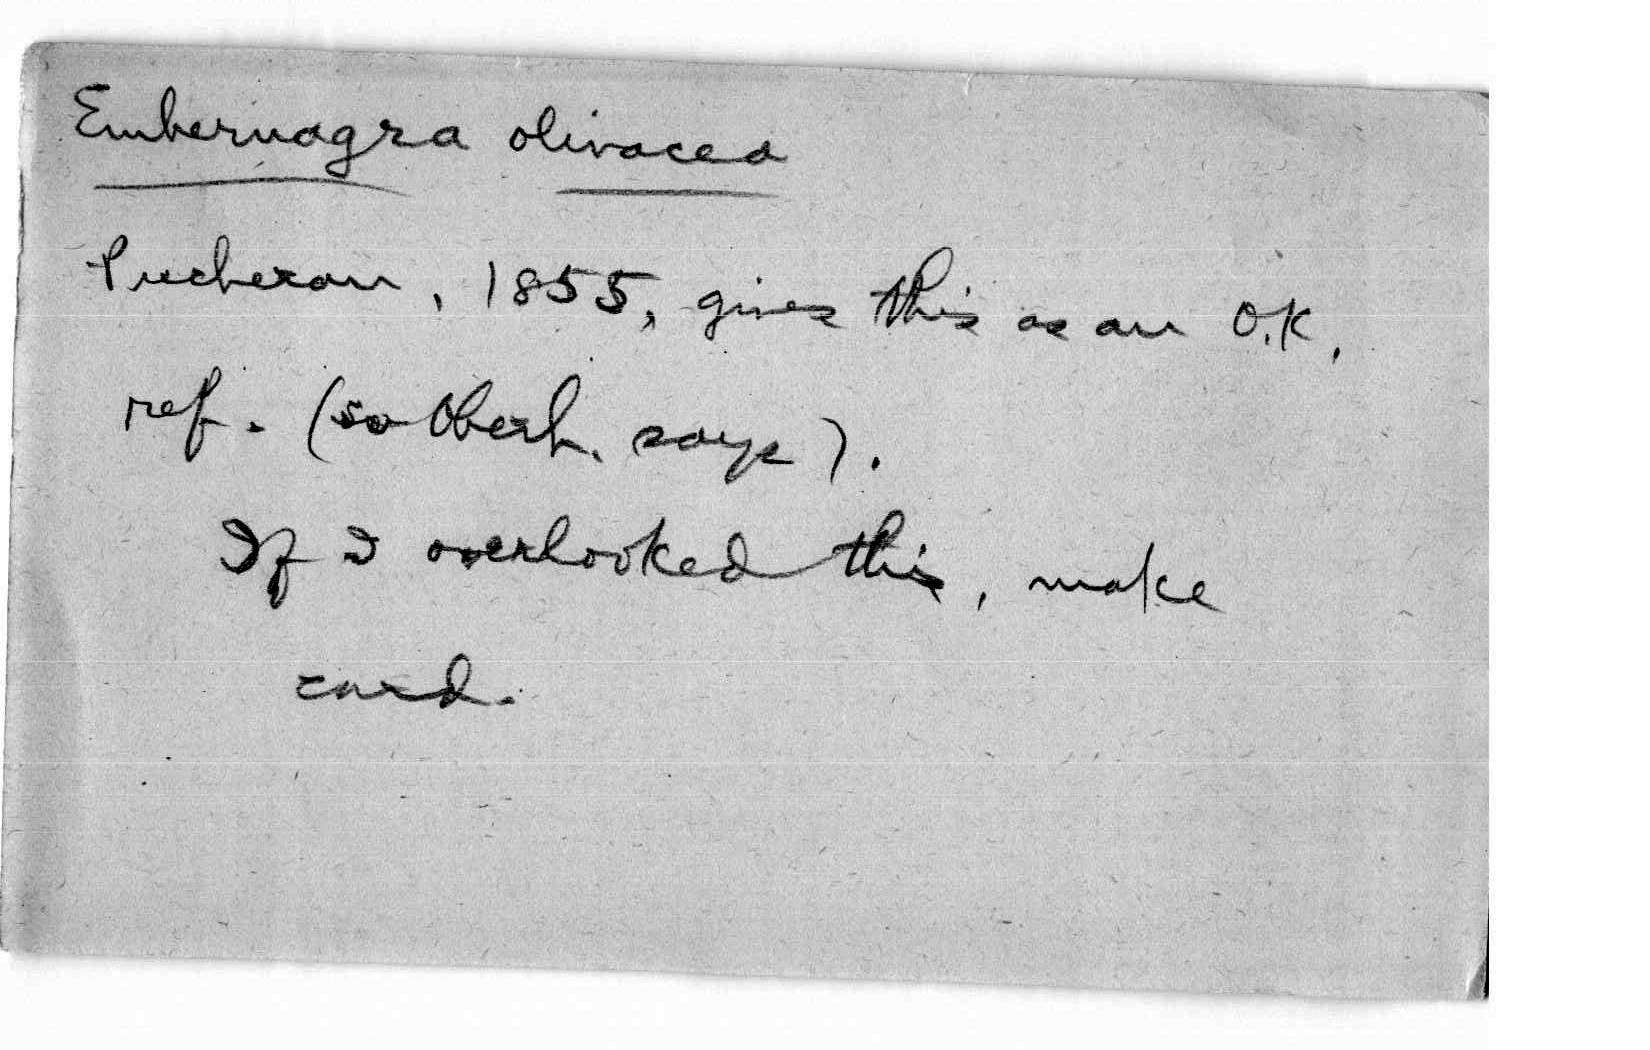 Embernagra olivacea
Pucheran, 1855, gives this as an O.K.
ref. (so Oberh. says).
If I overlooked this, make
card.